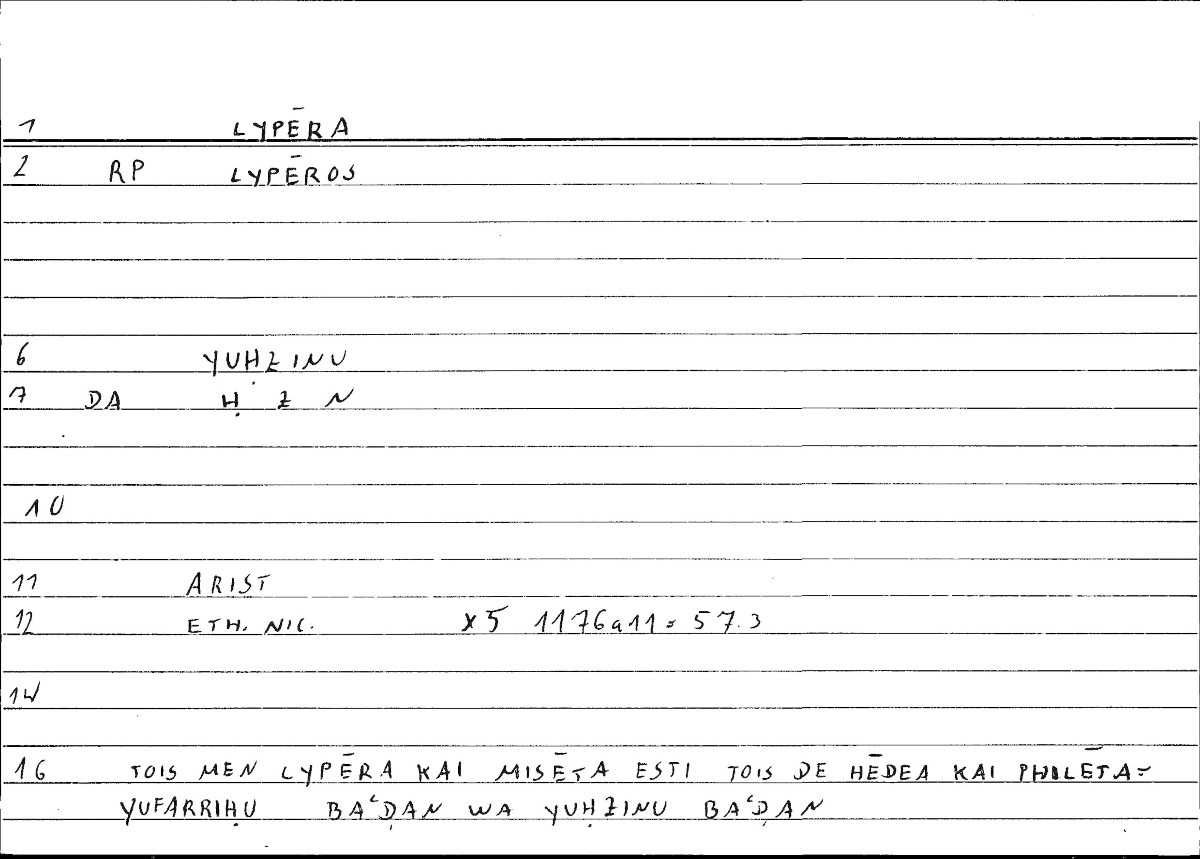 1 LYPĒRA
2 RP LYPĒROS
6 YUḤZINU
7 DA Ḥ Z N
10
11 ARIST
12 ETH. NIC. X5 1176a11 = 57.3
14
16 TOIS MEN LYPĒRA KAI MISĒTA ESTI TOIS DE HĒDEA KAI PHILĒTA=
YUFARRIḤU BAʿḌAN WA YUḤZINU BAʿḌAN